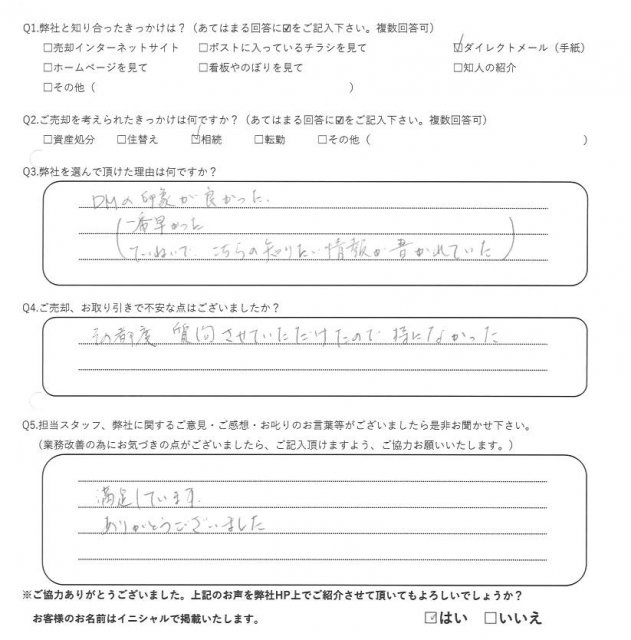 Q1.弊社と知り合ったきっかけは？（あてはまる回答に☑をご記入下さい。複数回答可）
□売却インターネットサイト □ポストに入っているチラシを見て ☑ダイレクトメール（手紙）
□ホームページを見て □看板やのぼりを見て □知人の紹介
□その他（ ）
Q2.ご売却を考えられたきっかけは何ですか？（あてはまる回答に☑をご記入下さい。複数回答可）
□資産処分 □住替え ☑相続 □転勤 □その他（ ）
Q3.弊社を選んで頂けた理由は何ですか？
DMの印象が良かった.
(一番早かった
ていねいで こちらの知りたい情報が書かれていた)
Q4.ご売却、お取り引きで不安な点はございましたか？
その都度 質問させていただけたので 特になかった
Q5.担当スタッフ、弊社に関するご意見・ご感想・お叱りのお言葉等がございましたら是非お聞かせ下さい。
（業務改善の為にお気づきの点がございましたら、ご記入頂けますよう、ご協力お願いいたします。）
満足しています.
ありがとうございました
※ご協力ありがとうございました。上記のお声を弊社HP上でご紹介させて頂いてもよろしいでしょうか？
お客様のお名前はイニシャルで掲載いたします。 ☑はい □いいえ